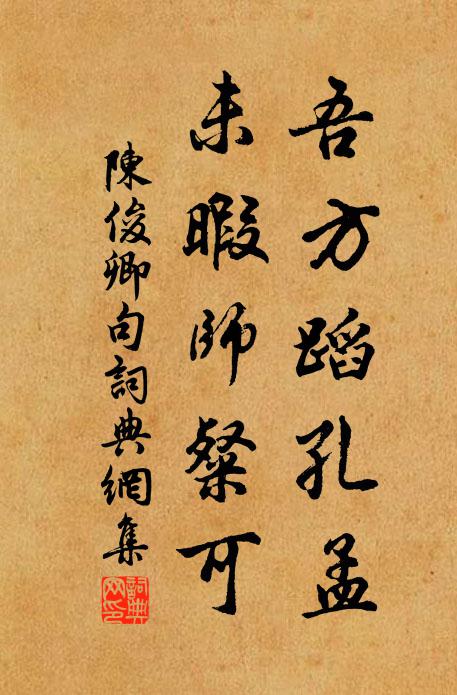 吾方蹈孔孟
未暇師粲可
陳俊卿句詞典網集
詞典
网印